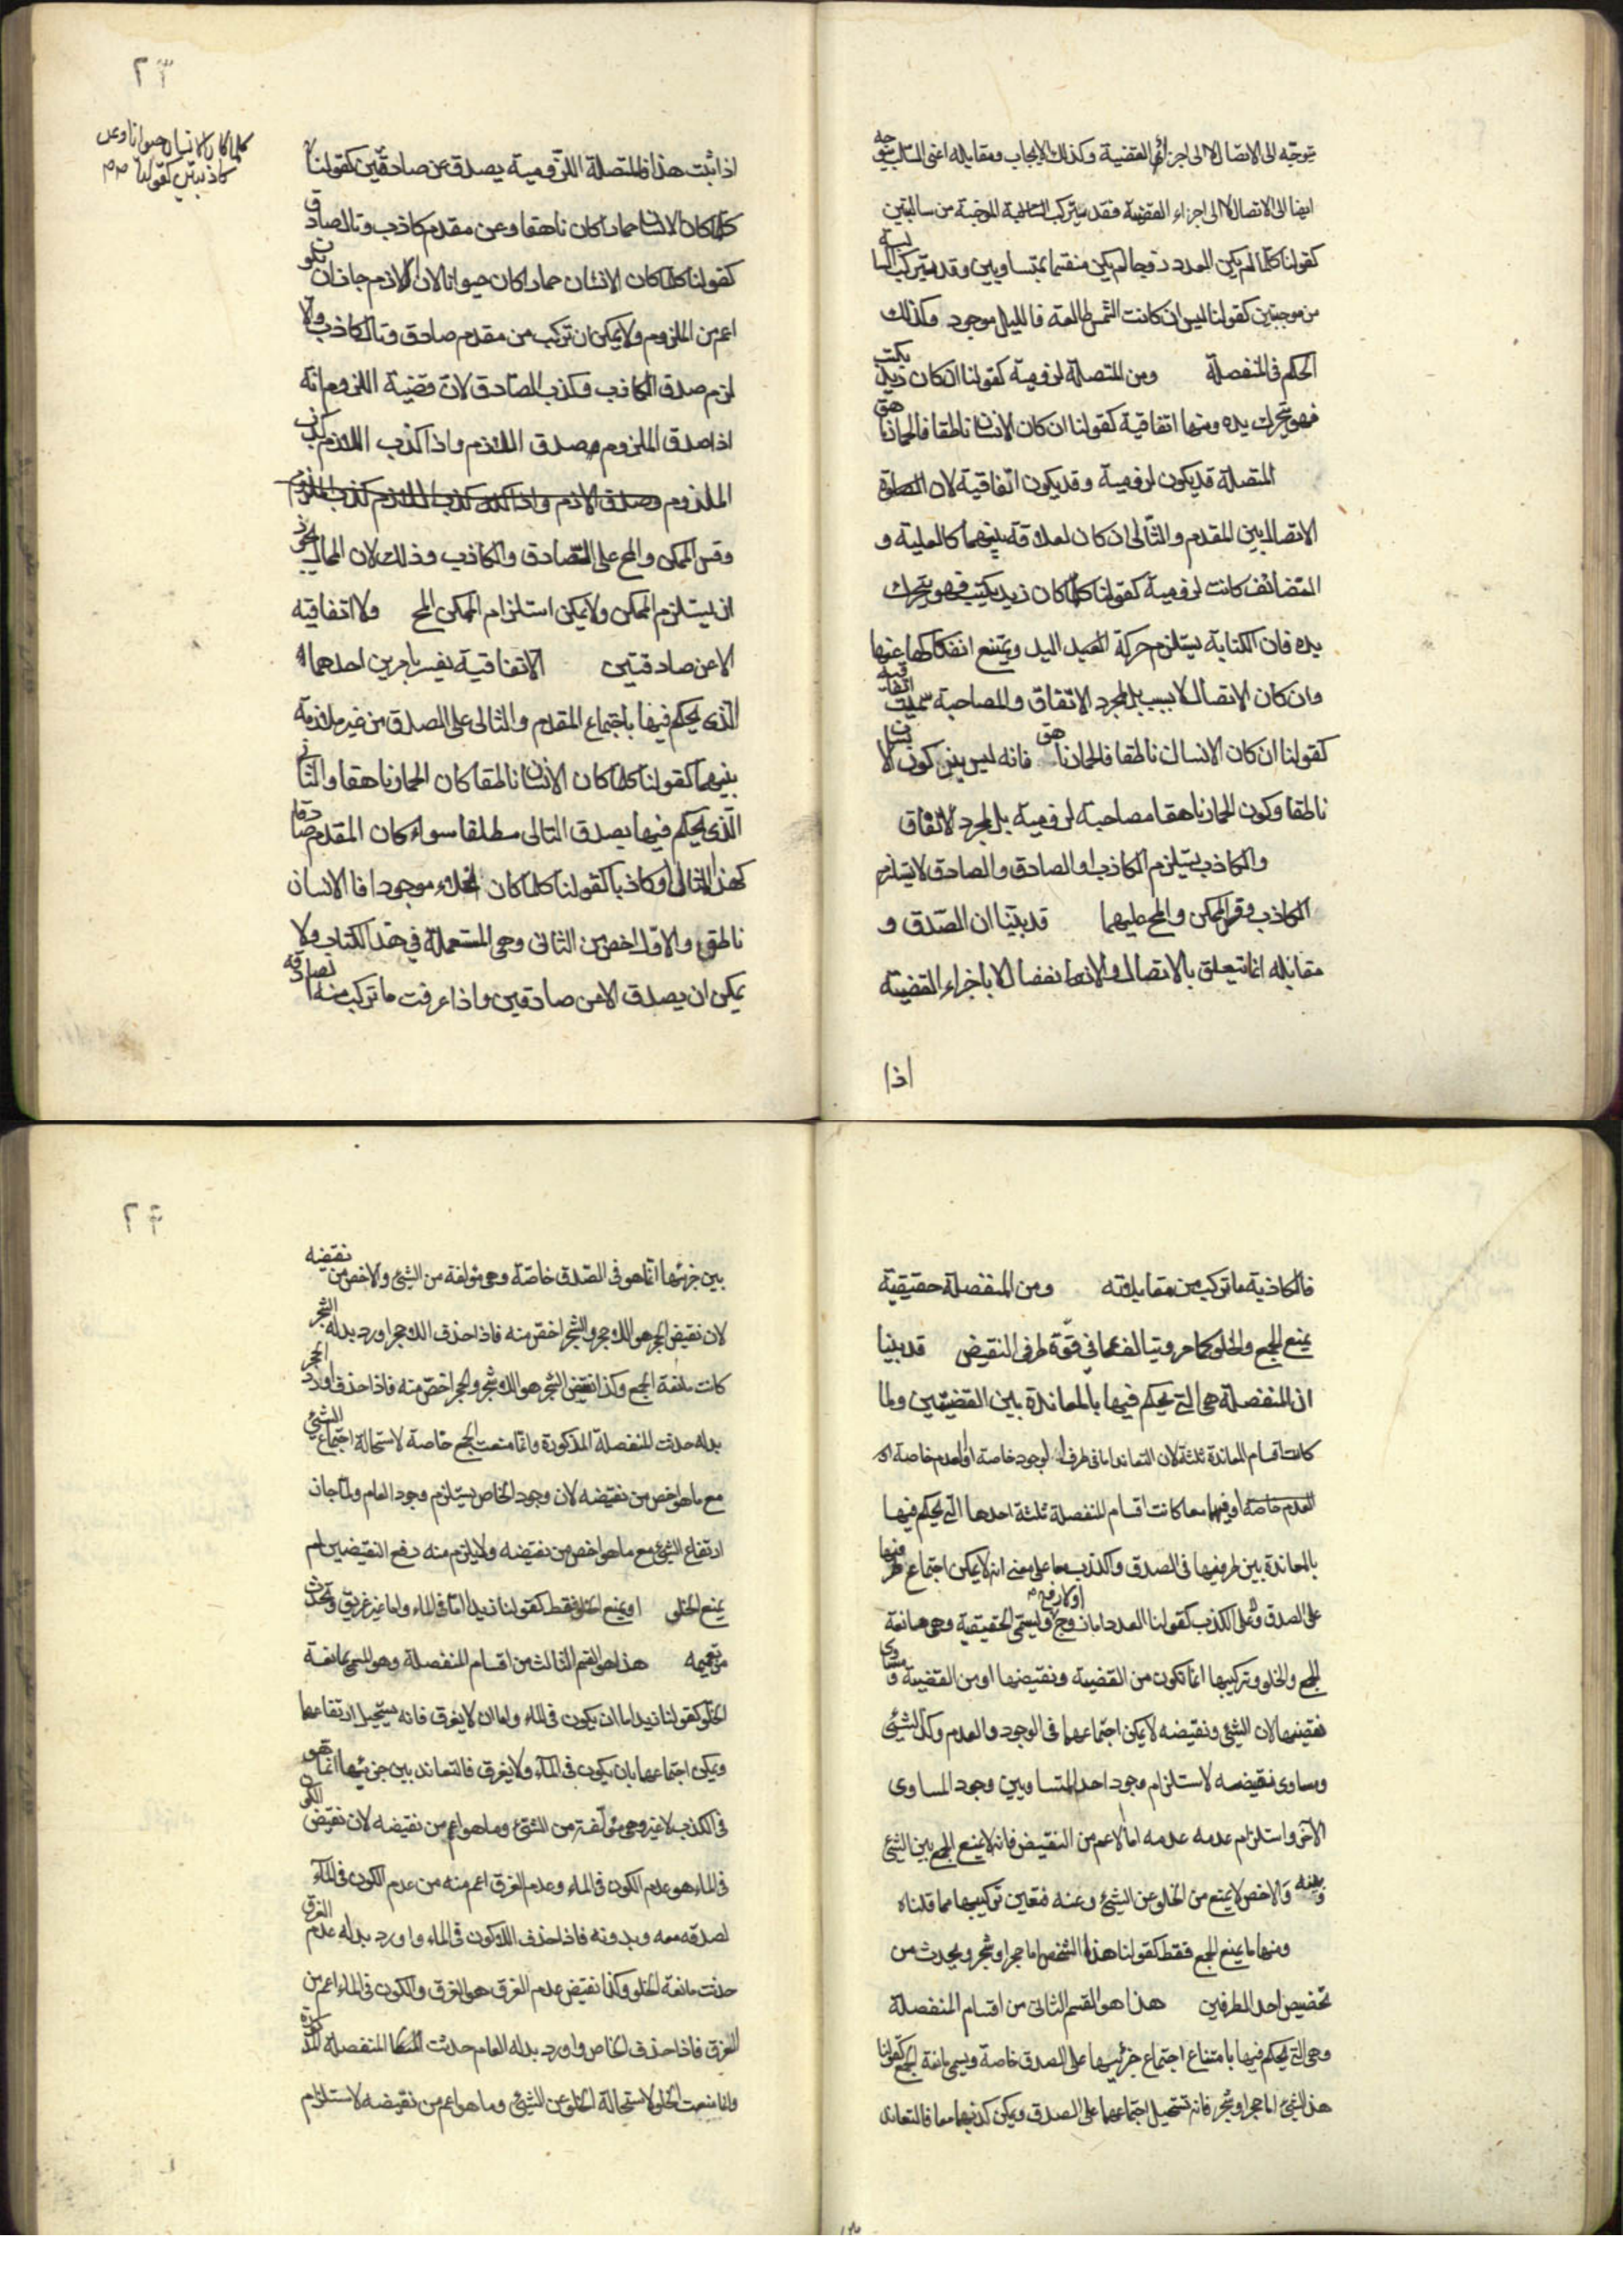 يتوجه الى الاتصال لا الى اجزائها القضية وكذلك الايجاب ومقابله اعنى السلب يتوجه
ايضا الى الاتصال لا الى اجزاء القضية فقد يتركب الموجبة من سالبتين
كقولنا كلما لم يكن العدد زوجا لم يكن منقسما بمتساويين وقد يتركب السالبة
من موجبتين كقولنا ليس ان كانت الشمس طالعة فالليل موجود وكذلك
الحكم فى المنفصلة ومن المتصلة لزومية كقولنا ان كان زيد يكتب
فهو يتحرك يده ومنها اتفاقية كقولنا ان كان الانسان ناطقا فالحمار ناهق
المتصلة قد يكون لزومية وقد يكون اتفاقية لان
الاتصال بين المقدم والتالى ان كان لعلاقة بينهما كالعلية و
التضائف كانت لزومية كقولنا كلما كان زيد يكتب فهو يتحرك
يده فان الكتابة يستلزم حركة اليد ويمتنع انفكاكها عنها
وان كان الاتصال لا بسبب بل لمجرد الاتفاق والمصاحبة سميت اتفاقية
كقولنا ان كان الانسان ناطقا فالحمار ناهق فانه ليس بين كون الانسان
ناطقا وكون الحمار ناهقا مصاحبة لزومية بل لمجرد الاتفاق
والكاذب يستلزم الكاذب او الصادق والصادق لا يستلزم
الكاذب وقس الممكن والمح عليهما قد بينا ان الصدق و
مقابله انما يتعلق بالاتصال والانفصال لا باجزاء القضية
اذا
٢٣
كلما كان الانسان حيوانا وعن
كاذبتين كقولنا صح
اذا ثبت هذا فالمتصلة اللزومية يصدق عن صادقين كقولنا
كلما كان الانسان حمارا كان ناهقا وعن مقدم كاذب وتال صادق
كقولنا كلما كان الانسان حمارا كان حيوانا لان اللازم جاز ان يكون
اعم من الملزوم ولا يمكن ان تركب من مقدم صادق وتال كاذب والا
لزم صدق الكاذب وكذب الصادق لان قضية اللزوم انه
اذا صدق الملزوم صدق اللازم واذا كذب اللازم كذب
الملزوم وصدق الازم واذا كذب اللازم كذب الملزوم
وقس الممكن والمح على الصادق والكاذب وذلك لان المحال يجوز
ان يستلزم الممكن ولا يمكن استلزام الممكن المح ولا اتفاقيه
الا عن صادقتين الاتفاقية يفسر بامرين احدهما
الذى يحكم فيها باجتماع المقدم والتالى على الصدق من غير ملازمة
بينهما كقولنا كلما كان الانسان ناطقا كان الحمار ناهقا والثانى
الذى يحكم فيها بصدق التالى مطلقا سواء كان المقدم صادقا
كهذا المثال او كاذبا كقولنا كلما كان الخلاء موجودا فالانسان
ناطق والاول اخص من الثانى وهى المستعملة فى هذ الكتاب ولا
يمكن ان يصدق الا من صادقين واذا عرفت ما تركب منه الصادقة
فالكاذبة ما تركب من مقابلاته ومن المنفصلة حقيقية
يمنع الجمع والخلو كما مر ويتالف مما فى قوة طرفى النقيض قد بينا
ان المنفصلة هى التى يحكم فيها بالمعاندة بين القضيتين ولما
كانت اقسام المعاندة ثلثة لان التعاند اما فى طرف الوجود خاصة او العدم خاصة او
العدم خاصة او فيهما معا كانت اقسام المنفصلة ثلثة احدها التى يحكم فيها
بالمعاندة بين طرفيها فى الصدق والكذب معا على معنى انه لا يمكن اجتماع طرفيها
على الصدق ولا على الكذب كقولنا العدد اما زوج اولا ويسمى الحقيقية وهى مانعة
الجمع والخلو وتركيبها انما تكون من القضية ونقيضها او من القضية ومساوى
نقيضها لان الشيئ ونقيضه لا يمكن اجتماعهما فى الوجود والعدم وكذا الشيئ
ومساوى نقيضه لاستلزام وجود احد المتساويين وجود المساوى
الاخر واستلزام عدمه عدمه اما الاعم من النقيض فانه لا يمنع الجمع بين الشيئ
وبينه والاخص لا يمنع من الخلو عن الشيئ وعنه فتعين تركيبها مما قلناه
ومنها ما يمنع الجمع فقط كقولنا هذا الشخص اما حجر او شجر ويحدث من
تخصيص احد الطرفين هذا هو القسم الثانى من اقسام المنفصلة
وهى التى يحكم فيها بامتناع اجتماع جزئيها على الصدق خاصة ويسمى مانعة الجمع كقولنا
هذ الشيئ اما حجر او شجر فانه تستحيل اجتماعهما على الصدق ويمكن كذبهما معا فالتعاند
٢٤
بين جزئيها انما هو فى الصدق خاصة وهى مؤلفة من الشيئ والاخص من نقيضه
لان نقيض الحجر هو اللاحجر والشجر اخص منه فاذا حذف اللاحجر اورد بدله الشجر
كانت مانعة الجمع وكذا نقيض الشجر هو اللاشجر والحجر اخص منه فاذا حذف اورد الحجر
بدله حدثت المنفصلة المذكورة وانما منعت الجمع خاصة لاستحالة اجتماع الشيئ
مع ما هو اخص من نقيضه لان وجود الخاص يستلزم وجود العام ولما جاز
ارتفاع الشيئ مع ما هو اخص من نقيضه ولا يلزم منه رفع النقيضين لم
يمنع الخلو او يمنع الخلو فقط كقولنا زيد اما فى الماء واما غير غريق ويحدث
من تعميمه هذا هو القسم الثالث من اقسام المنفصلة وهو المسمى بمانعة
الخلو كقولنا زيد اما ان يكون فى الماء واما ان لا يغرق فانه يستحيل ارتفاعهما
ويمكن اجتماعهما بان يكون فى الماء ولا يغرق فالتعاند بين جزئيها انما هو
فى الكذب لا غير وهى مؤلفة من الشيئ وما هو اعم من نقيضه لان نقيض الكون
فى الماء هو عدم الكون فى الماء وعدم الغرق اعم منه من عدم الكون فى الماء
لصدقه معه وبدونه فاذا حذف اللاكون فى الماء واورد بدله عدم الغرق
حدثت مانعة الخلو وكذا نقيض عدم الغرق هو الغرق والكون فى الماء اعم من
الغرق فاذا حذف الخاص واورد بدله العام حدثت المنفصلة المذكورة
وانما منعت الخلو لاستحالة الخلو عن الشيئ وما هو اعم من نقيضه لاستلزام